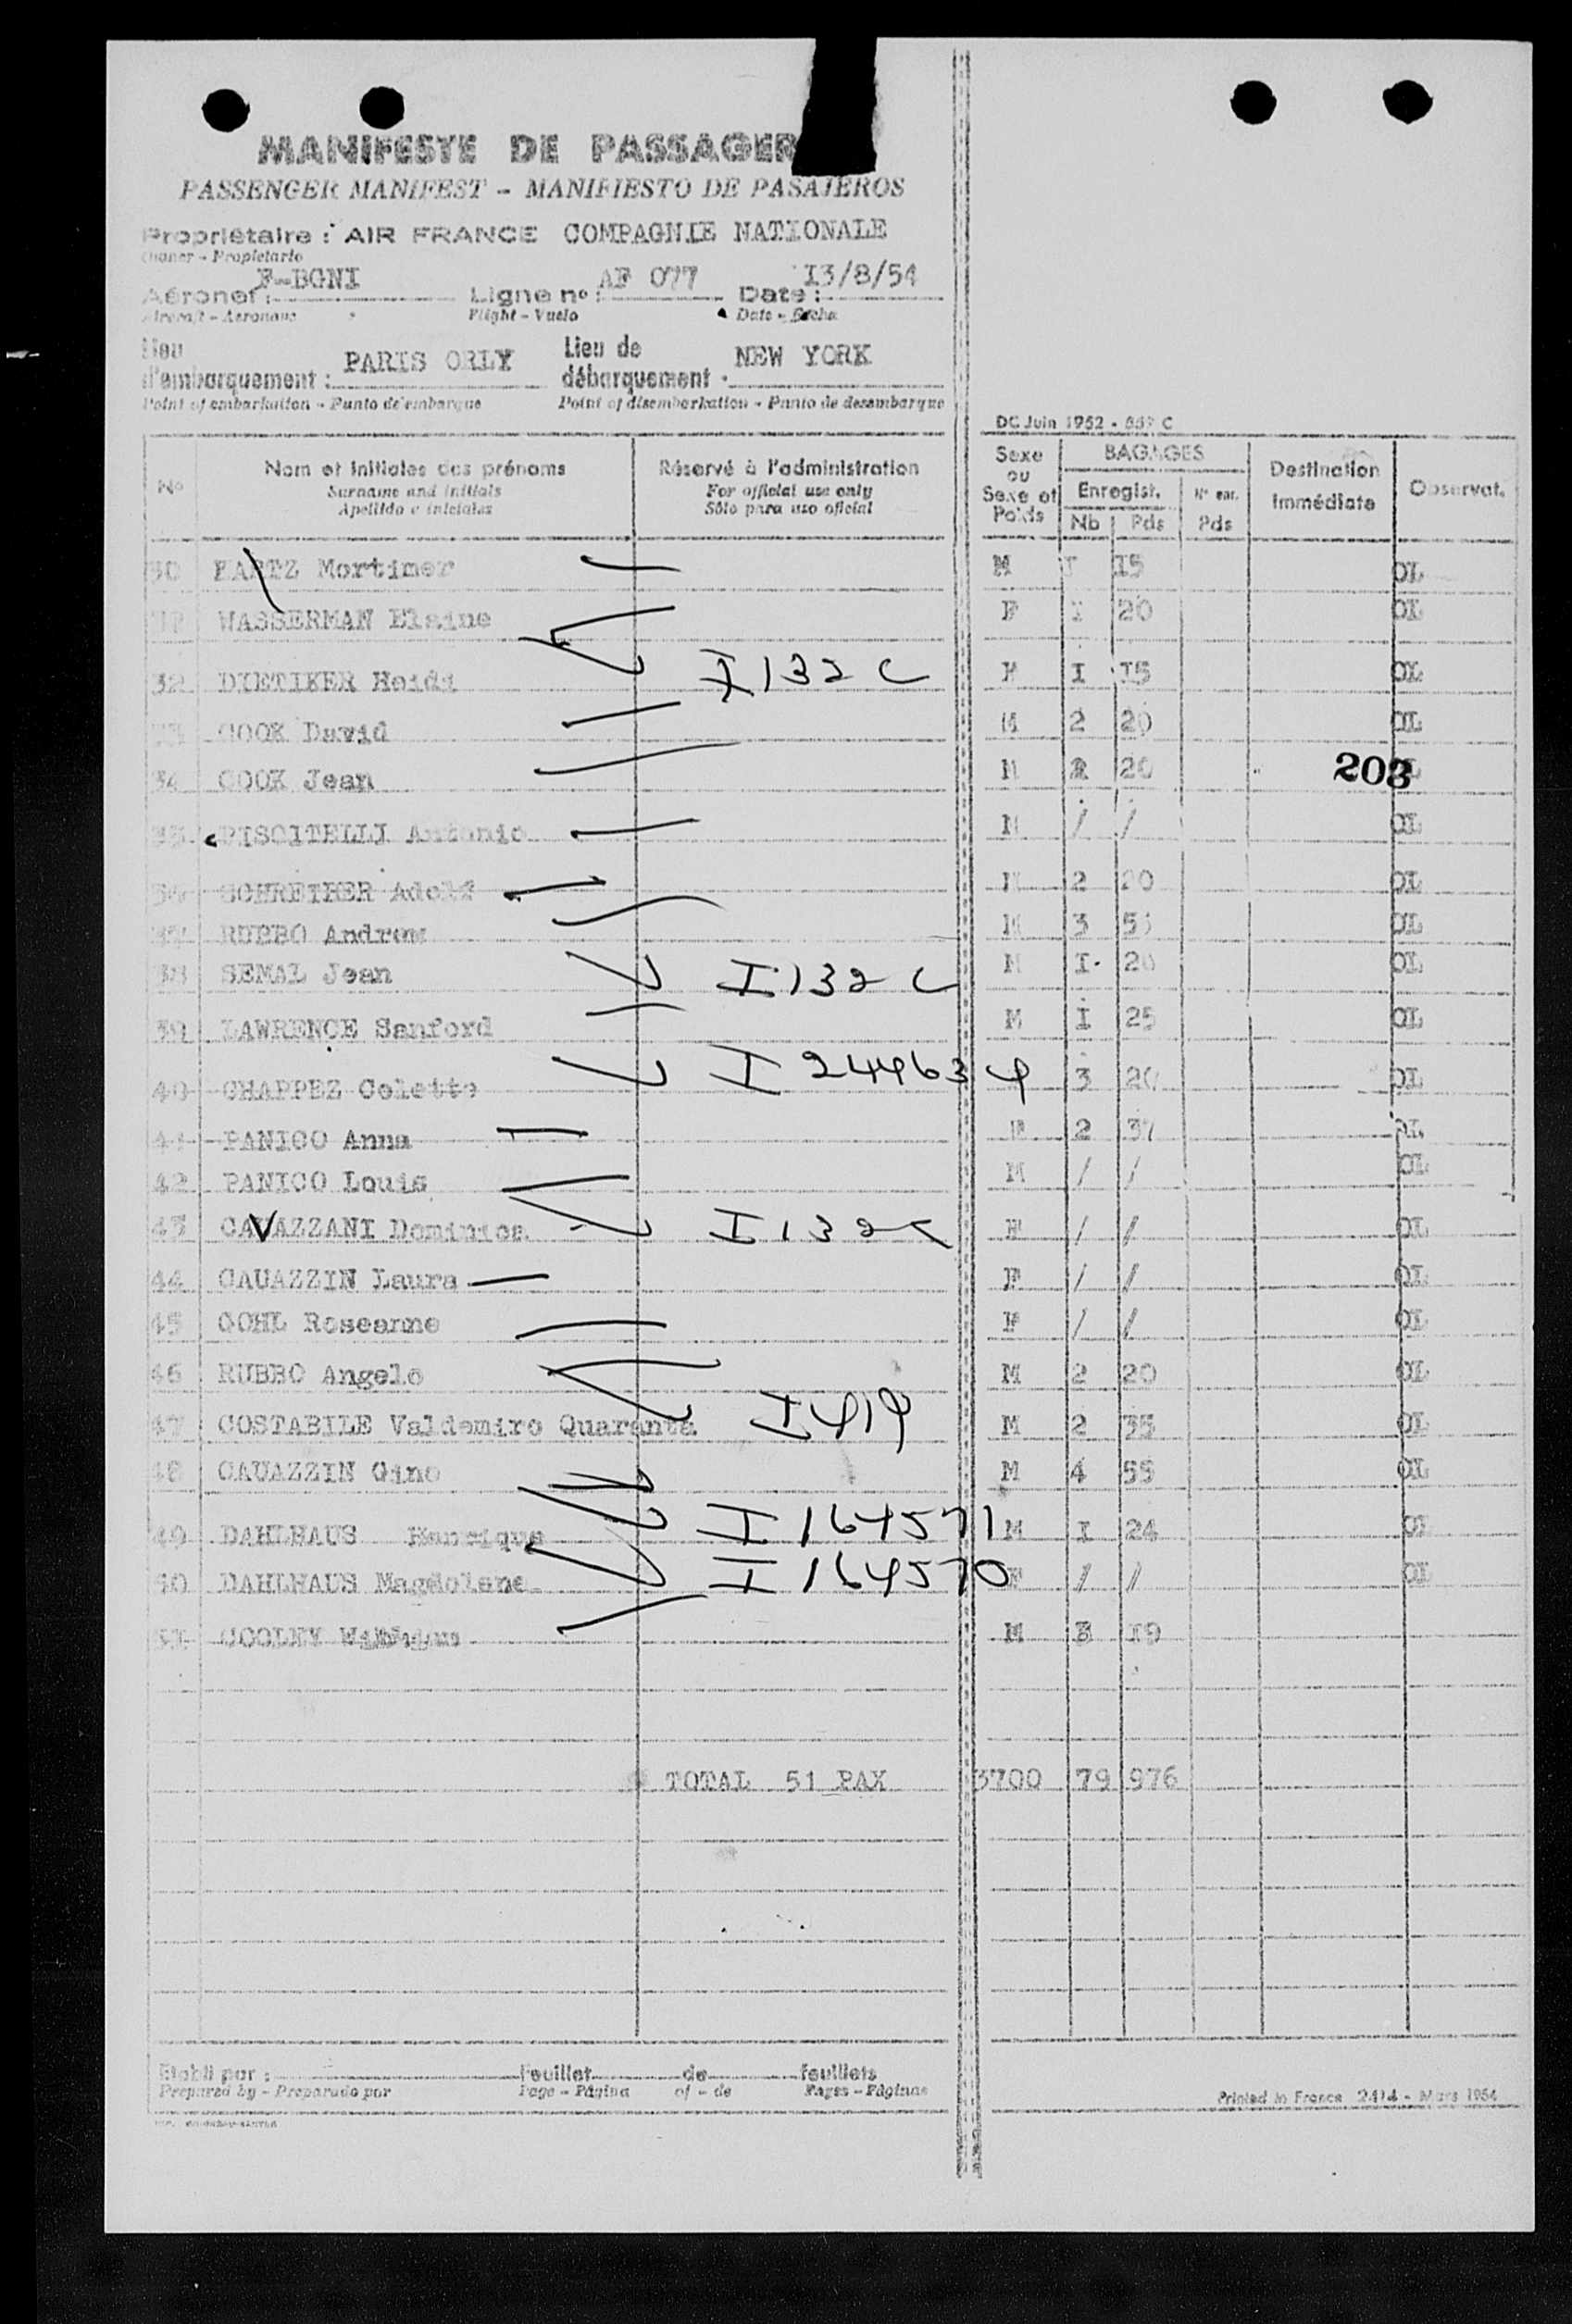 MANIFESTE DE PASSAGER
PASSENGER MANIFEST - MANIFIESTO DE PASAJEROS
Propriétaire : AIR FRANCE COMPAGNIE NATIONALE
Owner - Propietario
Aéronef : F-BGNI Ligne no : AF 077 Date : I3/8/54
Aircraft - Aeronave Flight - Vuelo Date - Fecha
Lieu d'embarquement : PARIS ORLY Lieu de débarquement : NEW YORK
Point of embarkation - Punto de embarque Point of disembarkation - Punto de desembarque
DC Juin 1952 - C
No Nom et initiales des prénoms Réservé à l'administration Sexe ou Sexe et Poids BAGAGES Destination immédiate Observat.
Surname and initials For official use only Enregist. Nb Pds Pds
Apellido e iniciales Sólo para uso oficial
Mortimer M I5 OL
WASSERMAN Elaine F I 20 OL
32 DIETIKER Heidi I132 C I I5 OL
COOK David M 2 20 OL
34 COOK Jean 20 203
PISCITELLI Antonio / / OL
Adolf 2 20 OL
Andrew 3 OL
38 SEMAL Jean I132 C I 20 OL
39 LAWRENCE Sanford M I 25 OL
40 CHAPPEZ Colette I 2449634 3 20 OL
41 PANICO Anna 2 37
42 PANICO Louis M / / OL
43 CAVAZZANI Dominica I132C F / / OL
44 CAUAZZIN Laura F / / OL
45 GOHL Roseanne F / / OL
46 RUBBO Angelo M 2 20 OL
47 COSTABILE Valdemiro Quaranta I419 M 2 35 OL
48 CAUAZZIN Gino M 4 55 OL
49 DAHLHAUS I 164571 M I 24
50 DAHLHAUS Magdolene I 164570 F / / OL
51 COOLEY M 3 I9
TOTAL 51 PAX 3700 79 976
Etabli par : Feuillet de feuillets
Prepared by - Preparado por Page - Página of - de Pages - Páginas
Printed in France 2414 - Mars 1954